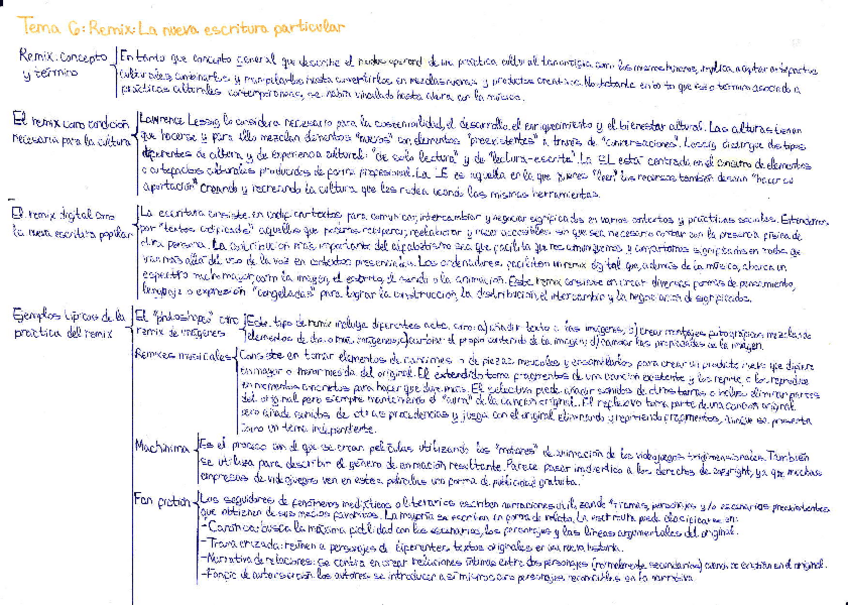 Tema 6: Remix: La nueva escritura particular
Remix: concepto y término
En tanto que concepto general que describe el modus operandi de una práctica cultural tan antigua como los mismos humanos, implica adoptar artefactos
culturales combinarlos y manipularlos hasta convertirlos en mezclas nuevas y productos creativos. No obstante en tanto que nuevo término asociado a
prácticas culturales contemporáneas, se había vinculado hasta ahora con la música.
El remix como condición necesaria para la cultura
Lawrence Lessig, lo considera necesario para la sostenibilidad, el desarrollo, el enriquecimiento y el bienestar cultural. Las culturas tienen
que hacerse y para ello mezclan elementos "nuevos" con elementos "preexistentes" a través de "conversaciones". Lessig distingue dos tipos
diferentes de cultura y de experiencia cultural: "de solo lectura" y de "lectura-escrita". La SL está centrada en el consumo de elementos
o artefactos culturales producidos de forma profesional. La LE es aquella en la que quienes "leen" los recursos también desean "hacer su
aportación" creando y recreando la cultura que les rodea usando las mismas herramientas.
El remix digital como la nueva escritura popular
La escritura consiste en codificar textos para comunicar, intercambiar y negociar significados en varios contextos y prácticas sociales. Entendemos
por "textos codificados" aquellos que podemos recuperar, reelaborar y hacer accesibles sin que sea necesario contar con la presencia física de
otra persona. La contribución más importante del alfabetismo es la que facilita que nos comuniquemos y compartamos significados en modos que
van más allá del uso de la voz en contextos presenciales. Los ordenadores facilitan un remix digital que, además de la música, abarca un
espectro mucho mayor, como la imagen, el escrito, el sonido o la animación. Este remix consiste en crear diversas formas de pensamiento,
lenguaje o expresión "congeladas" para lograr la construcción, la distribución, el intercambio y la negociación de significados.
Ejemplos típicos de la práctica del remix
El "photoshopeo" como remix de imágenes
Este tipo de remix incluye diferentes actos, como: a) añadir texto a las imágenes, b) crear montajes fotográficos mezclando
elementos de dos o más imágenes, c) cambiar el propio contenido de la imagen y d) cambiar las propiedades de la imagen.
Remixes musicales
Consiste en tomar elementos de canciones o de piezas musicales y ensamblarlos para crear un producto nuevo que difiere
en mayor o menor medida del original. El extendido toma fragmentos de una canción existente y los repite, o los reproduce
en momentos concretos para hacer que dure más. El selectivo puede añadir sonidos de otros temas o incluso eliminar partes
del original pero siempre manteniendo el "aura" de la canción original. El reflexivo toma parte de una canción original
pero añade sonidos de otras procedencias y juega con el original eliminando y repitiendo fragmentos, aunque se presenta
como un tema independiente.
Machinima
Es el proceso con el que se crean películas utilizando los "motores" de animación de los videojuegos tridimensionales. También
se utiliza para describir el género de animación resultante. Parece pasar inadvertido a los derechos de copyright, ya que muchas
empresas de videojuegos ven en estas películas una forma de publicidad gratuita.
Fan fiction
Los seguidores de fenómenos mediáticos o literarios escriben narraciones utilizando tramas, personajes y/o escenarios preexistentes
que obtienen de sus medios favoritos. La mayoría se escriben en forma de relato. La escritura puede clasificarse en:
-Canónica: busca la máxima fidelidad con los escenarios, los personajes y las líneas argumentales del original.
-Trama cruzada: reúnen a personajes de diferentes textos originales en una nueva historia.
-Narrativa de relaciones: se centra en crear relaciones íntimas entre dos personajes (normalmente secundarios) cuando no existían en el original.
-Fanfic de autoinserción: los autores se introducen a sí mismos como personajes reconocibles en la narrativa.